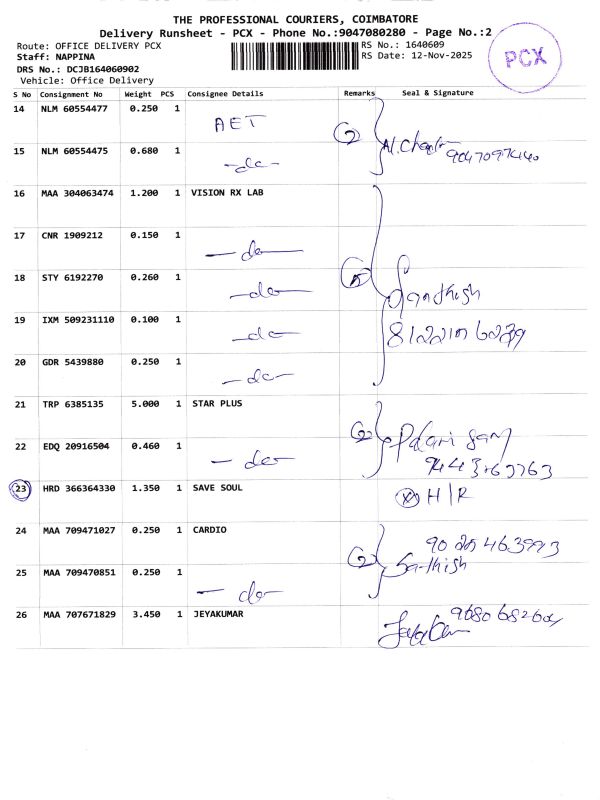 THE PROFESSIONAL COURIERS, COIMBATORE
Delivery Runsheet - PCX - Phone No.:9047080280 - Page No.:2
Route: OFFICE DELIVERY PCX RS No.: 1640609
Staff: NAPPINA RS Date: 12-Nov-2025
DRS No.: DCJB164060902
Vehicle: Office Delivery
PCX
S No Consignment No Weight PCS Consignee Details Remarks Seal & Signature
14 NLM 60554477 0.250 1 AET
15 NLM 60554475 0.680 1 -do-
16 MAA 304063474 1.200 1 VISION RX LAB
17 CNR 1909212 0.150 1 -do-
18 STY 6192270 0.260 1 -do-
19 IXM 509231110 0.100 1 -do-
20 GDR 5439880 0.250 1 -do-
21 TRP 6385135 5.000 1 STAR PLUS
22 EDQ 20916504 0.460 1 -do-
23 HRD 366364330 1.350 1 SAVE SOUL H/R
24 MAA 709471027 0.250 1 CARDIO
25 MAA 709470851 0.250 1 -do- Sathish
26 MAA 707671829 3.450 1 JEYAKUMAR